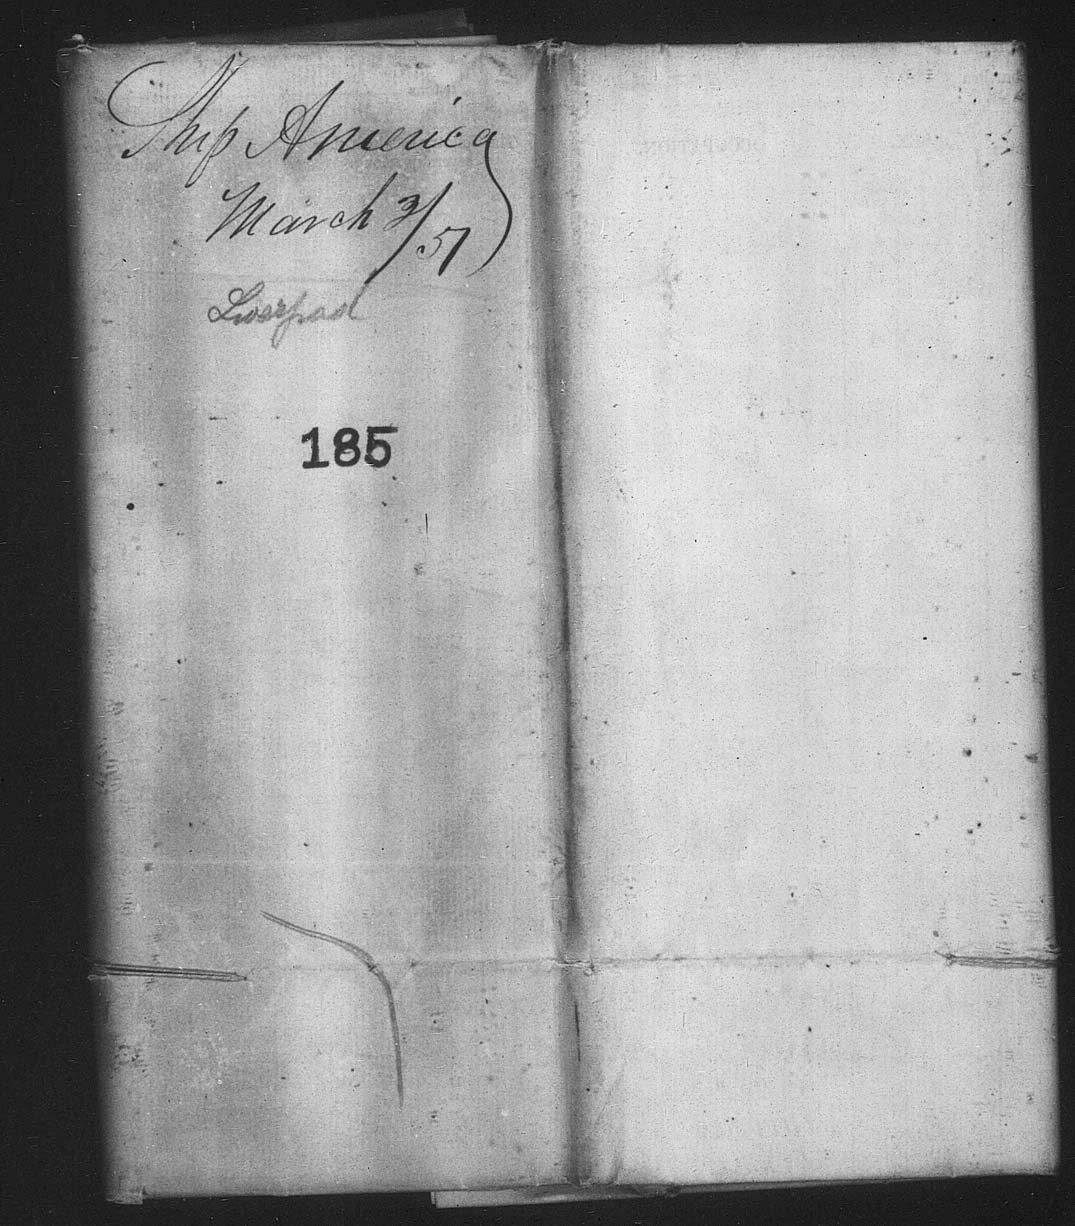 Ship America
March 3/51
Liverpool
185